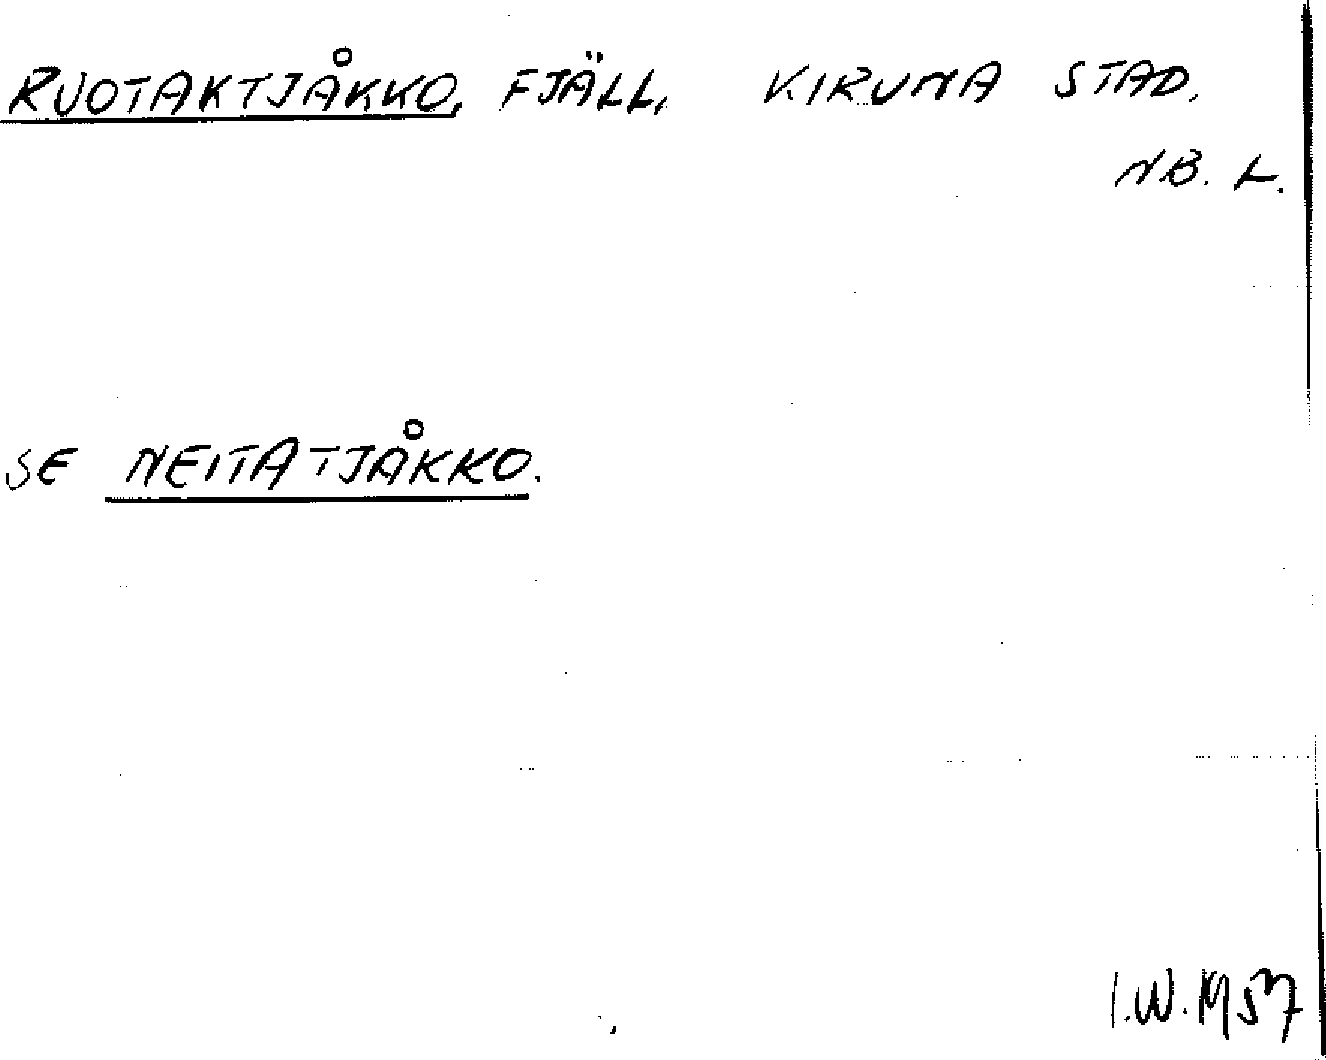 RUOTAKTJÅKKO, FJÄLL, KIRUNA STAD.
NB. L.
SE NEITATJÅKKO.
I.W. 1957